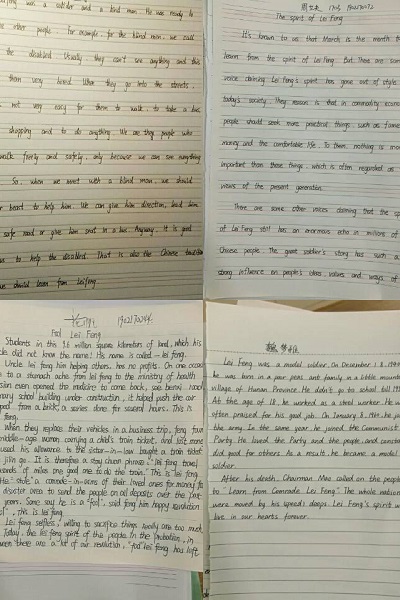 was a soldier and a kind man. He was ready to
other people. For example, for the blind man, we call
the disabled. Usually they can't see anything and this
them very bored. When they go into the streets,
not very easy for them to walk, to take a bus
shopping and to do anything. We are they people who
walk freely and safely, only because we can see everything
So, when we meet with a blind man, we should
heart to help him. We can give him direction, lead him
safe road or give him seat in a bus. Anyway, it is good
to help the disabled. That is also the Chinese tradition
should learn from Leifeng.
The spirit of Lei Feng
It's known to us that March is the month to
learn from the spirit of Lei Feng. But there are some
voice claiming Lei Feng's spirit has gone out of style
today's society. They reason is that in commodity economy
people should seek more practical things, such as fame
money and the comfortable life. To them, nothing is more
important than these things, which is often regarded as
views of the present generation.
There are some other voices claiming that the spirit
of Lei Feng still has an enormous echo in millions of
Chinese people. The great soldier's story has such a
strong influence on people's class values and ways of
Fool Lei Feng
Students in this 9.6 million square kilometers of land, which his
did not know the name! His name is called - lei feng.
Uncle lei feng him helping others has no profits. On one occasion
to a stomach ache lei feng to the ministry of health
even opened the medicine to come back, see
school building under construction, it helped push the car
from a brick, a series done for several hours. This is
feng.
When they replace their vehicles in a business trip, feng found
middle-age woman carrying a child's train ticket, and lost some
used his allowance to the sister-in-law bought a train ticket
It is therefore a stay chosen phrase: "lei feng travel
thousands of miles one good one to do the train." This is lei feng.
He "stole" a comrade-in-arms of their loved ones for money for
disaster area to send the people on oil deposits over the past
years. Some say he is a "fool", said feng him happy revolution
", this is lei feng.
Lei feng selfless, willing to sacrifice things really are too much
Today, the lei feng spirit of the people in the probation, in
there are a lot of our revolution, "fool lei feng has left
Lei Feng was a model soldier. On December 18, 194
he was born in a poor peasant family in a little mountain
village of Hunan Province. He didn't go to school till 19
At the age of 18, he worked as a steel worker. He was
often praised for his good job. On January 8, 1961, he joined
the army. In the same year, he joined the Communist
Party. He loved the Party and the people, and constantly
did good for others. As a result he became a model
soldier.
After his death, Chairman Mao called on the people
to "Learn from Comrade Lei Feng." The whole nation
were moved by his speedy deeps. Lei Feng's spirit will
live in our hearts forever.